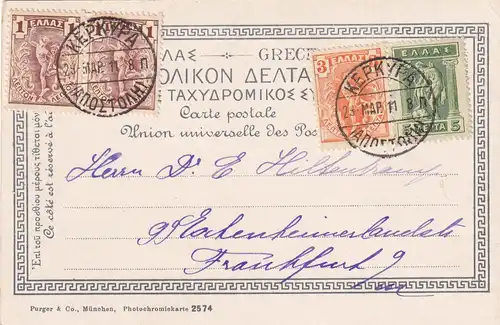 1 ΕΛΛΑΣ 1
ΚΕΡΚΥΡΑ
24 ΜΑΡ 11 8 Π
ΑΠΟΣΤΟΛΗ
ΛΑΣ GRECE
ΟΛΙΚΟΝ ΔΕΛΤΑ
ΤΑΧΥΔΡΟΜΙΚΟΣ ΣΥ
Carte postale
Union universelle des Pos
3 ΕΛΛΑΣ
ΕΛΛΑΣ
ΚΕΡΚΥΡΑ
24 ΜΑΡ 11 8 Π
ΑΠΟΣΤΟΛΗ
5 5
Ἐπὶ τοῦ προσθίου μέρους τίθεται μόν
Ce côté est réservé à l'a
Herrn Dr E
Frankfurt
Purger & Co., München, Photochromiekarte 2574